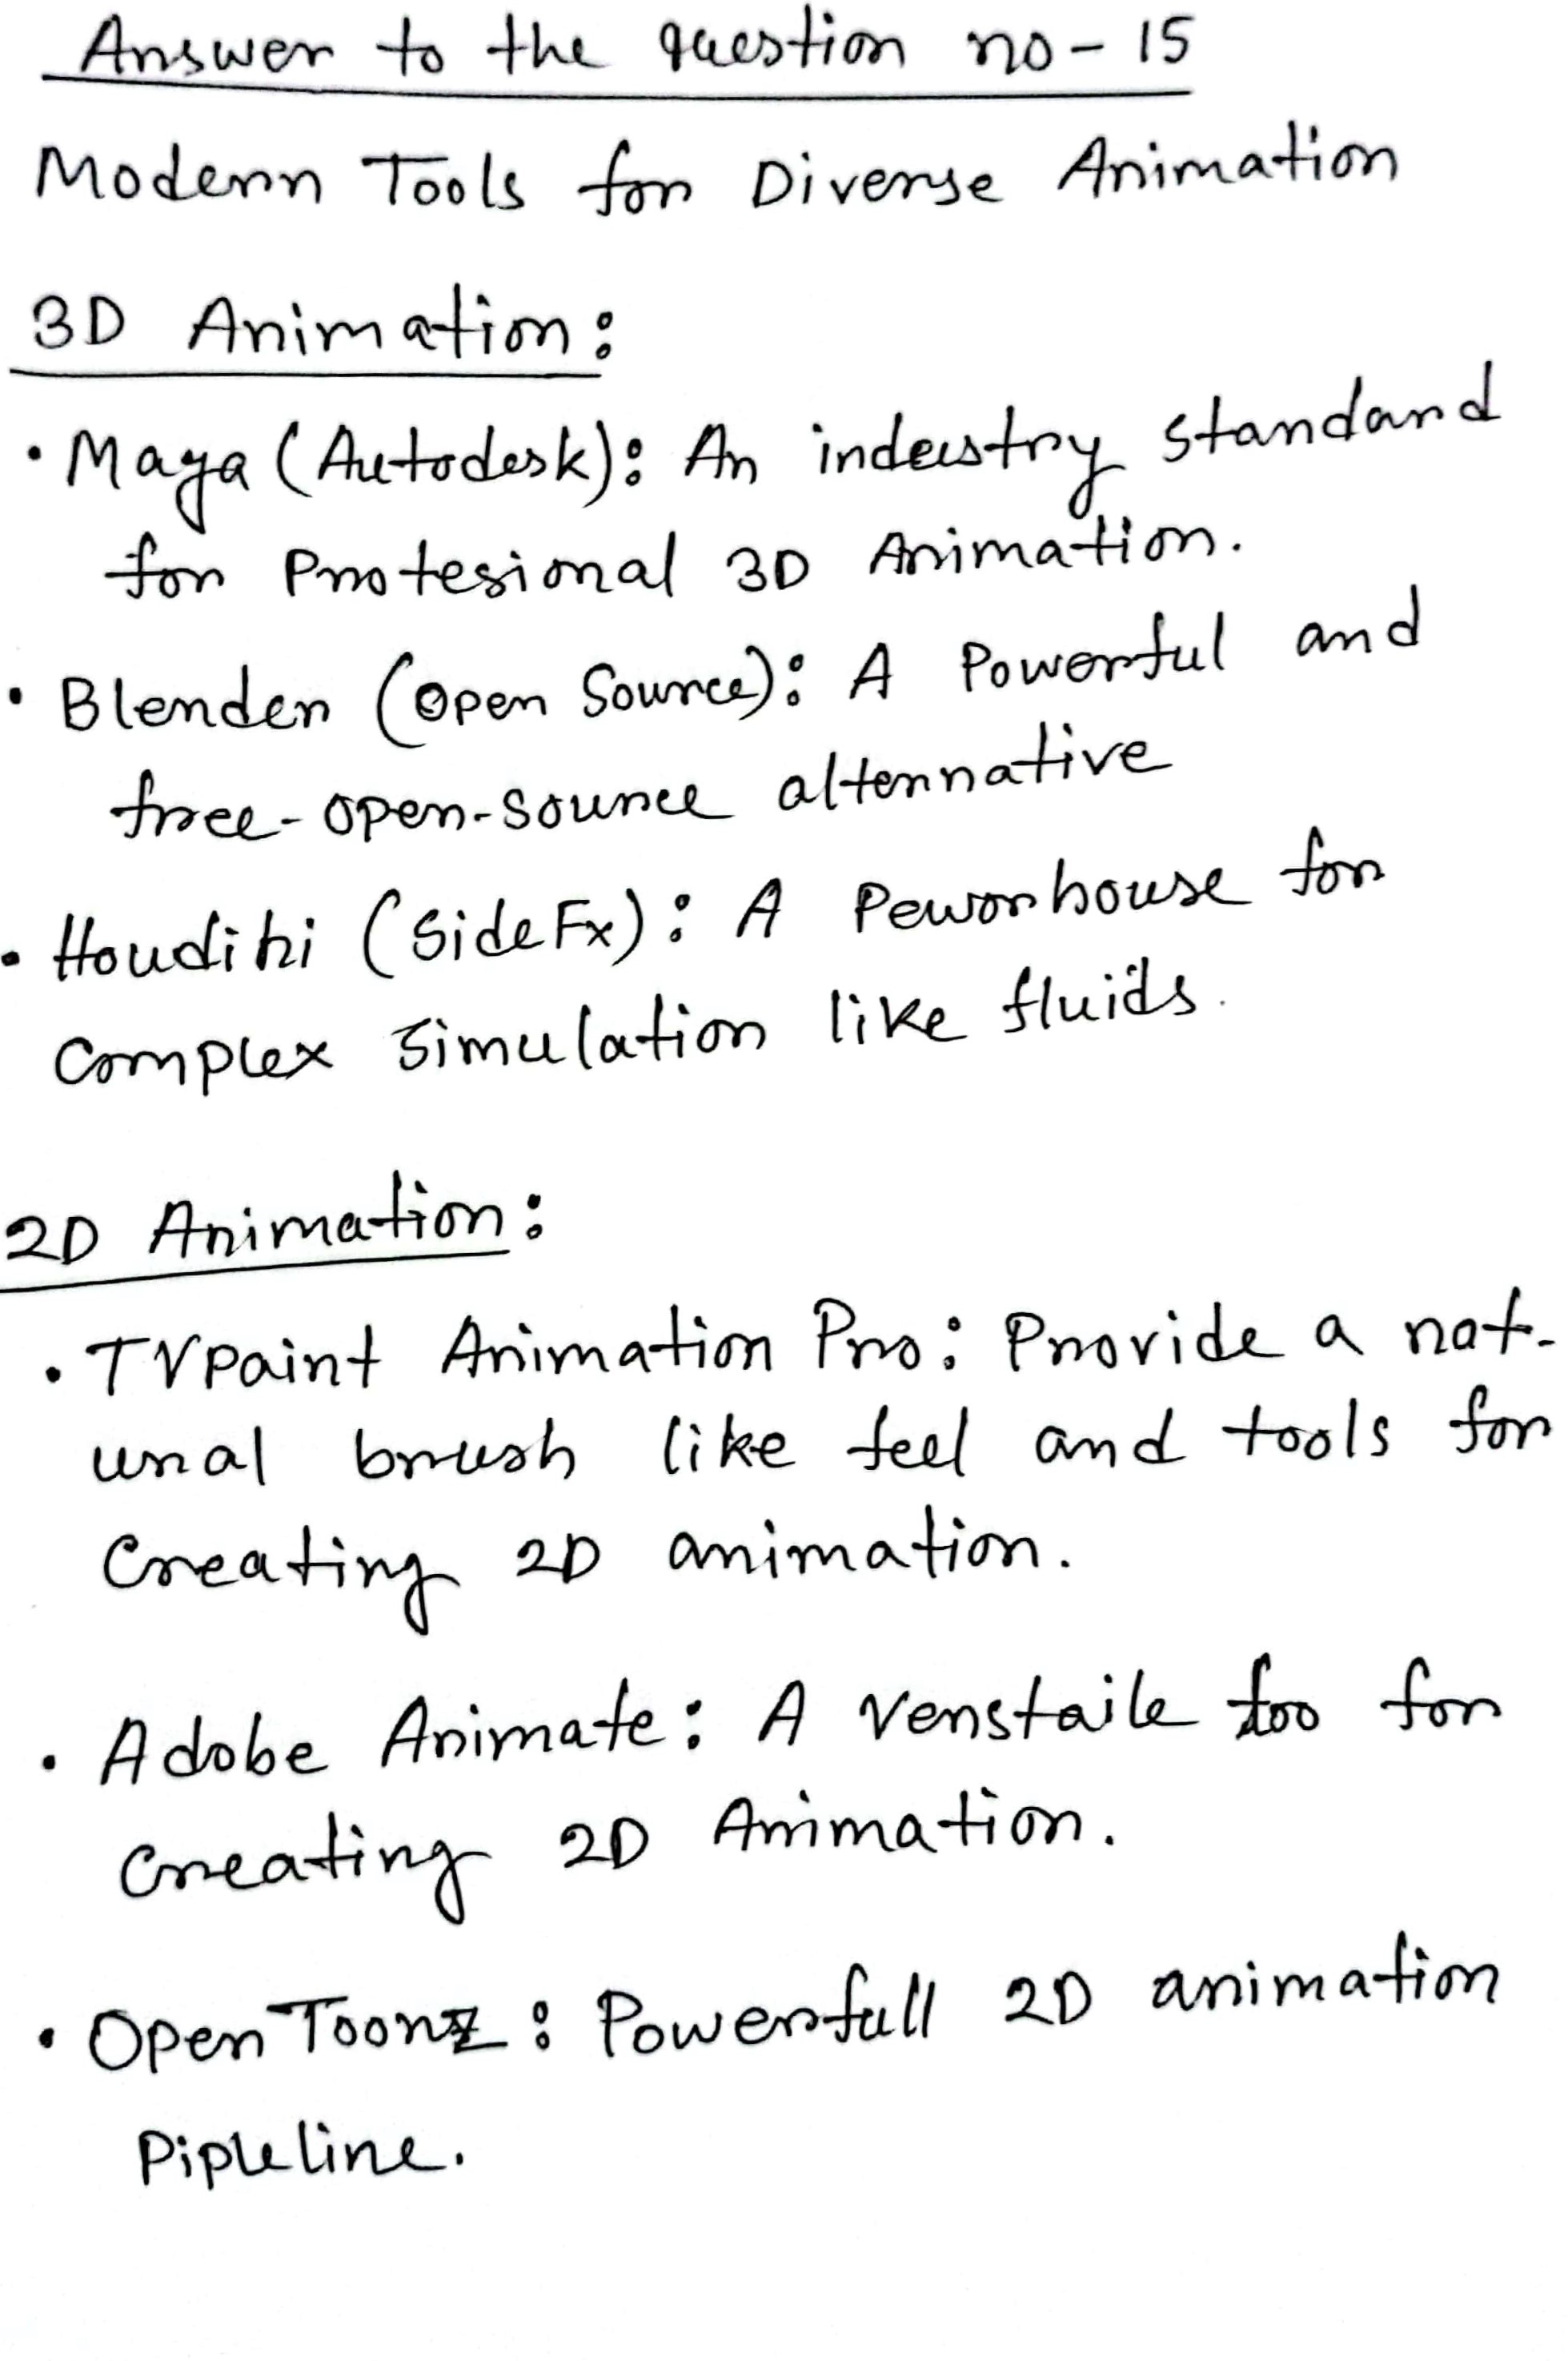 Answer to the question no - 15
Modern Tools for Diverse Animation
3D Animation:
• Maya (Autodesk): An industry standard
for Protesional 3D Animation.
• Blender (Open Source): A Powerful and
free-open-source alternative
• Houdihi (SideFx): A Peworhouse for
Complex Simulation like fluids.
2D Animation:
• TVpaint Animation Pro: Provide a nat-
ural brush like feel and tools for
Creating 2D animation.
• Adobe Animate: A Verstaile too for
Creating 2D Animation.
• OpenToonz: Powerfull 2D animation
Pipleline.